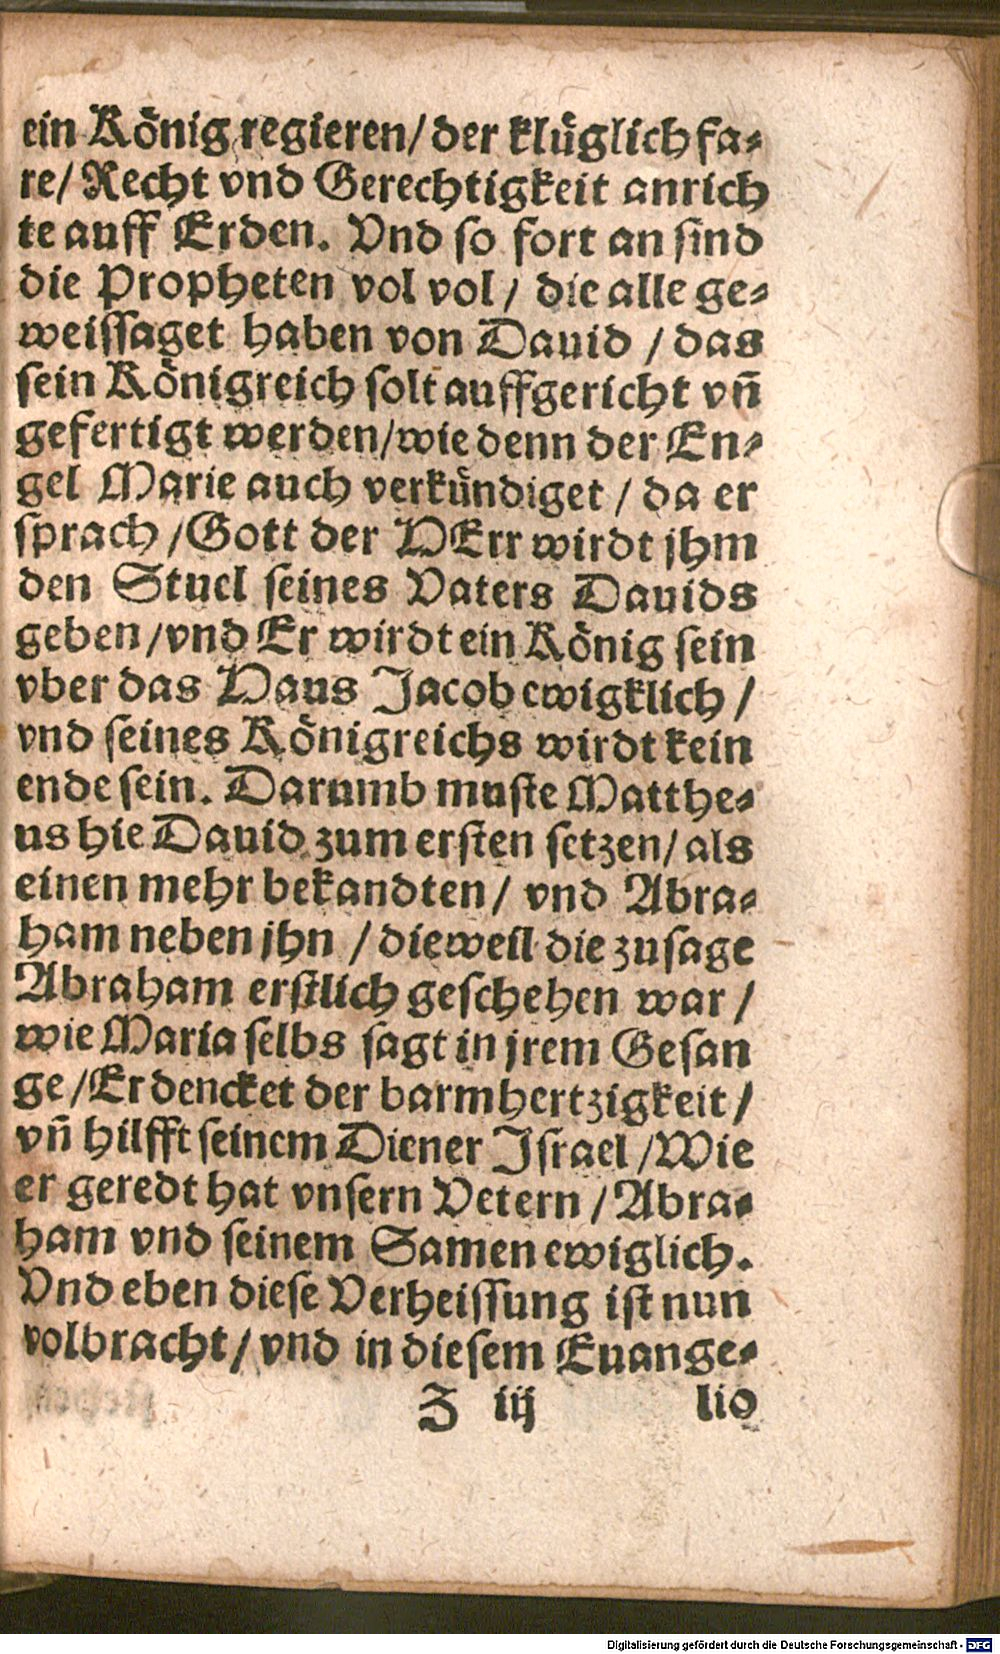 ein König regieren/ der klüglich fa-
re/ Recht vnd Gerechtigkeit anrich
te auff Erden. Vnd so fort an sind
die Propheten vol vol/ die alle ge-
weissaget haben von Dauid / das
sein Königreich solt auffgericht vñ
gefertigt werden/wie denn der En-
gel Marie auch verkündiget / da er
sprach /Gott der HErr wirdt jhm
den Stuel seines Vaters Dauids
geben /vnd Er wirdt ein König sein
vber das Haus Jacob ewigklich /
vnd seines Königreichs wirdt kein
ende sein. Darumb muste Matthe-
us hie Dauid zum ersten setzen/ als
einen mehr bekandten/ vnd Abra-
ham neben jhn / dieweil die zusage
Abraham erstlich geschehen war /
wie Maria selbs sagt in jrem Gesan
ge /Er dencket der barmhertzigkeit /
vñ hilfft seinem Diener Israel /Wie
er geredt hat vnsern Vetern / Abra-
ham vnd seinem Samen ewiglich.
Vnd eben diese Verheissung ist nun
volbracht/ vnd in diesem Euange-
Z iij lio
Digitalisierung gefördert durch die Deutsche Forschungsgemeinschaft - DFG